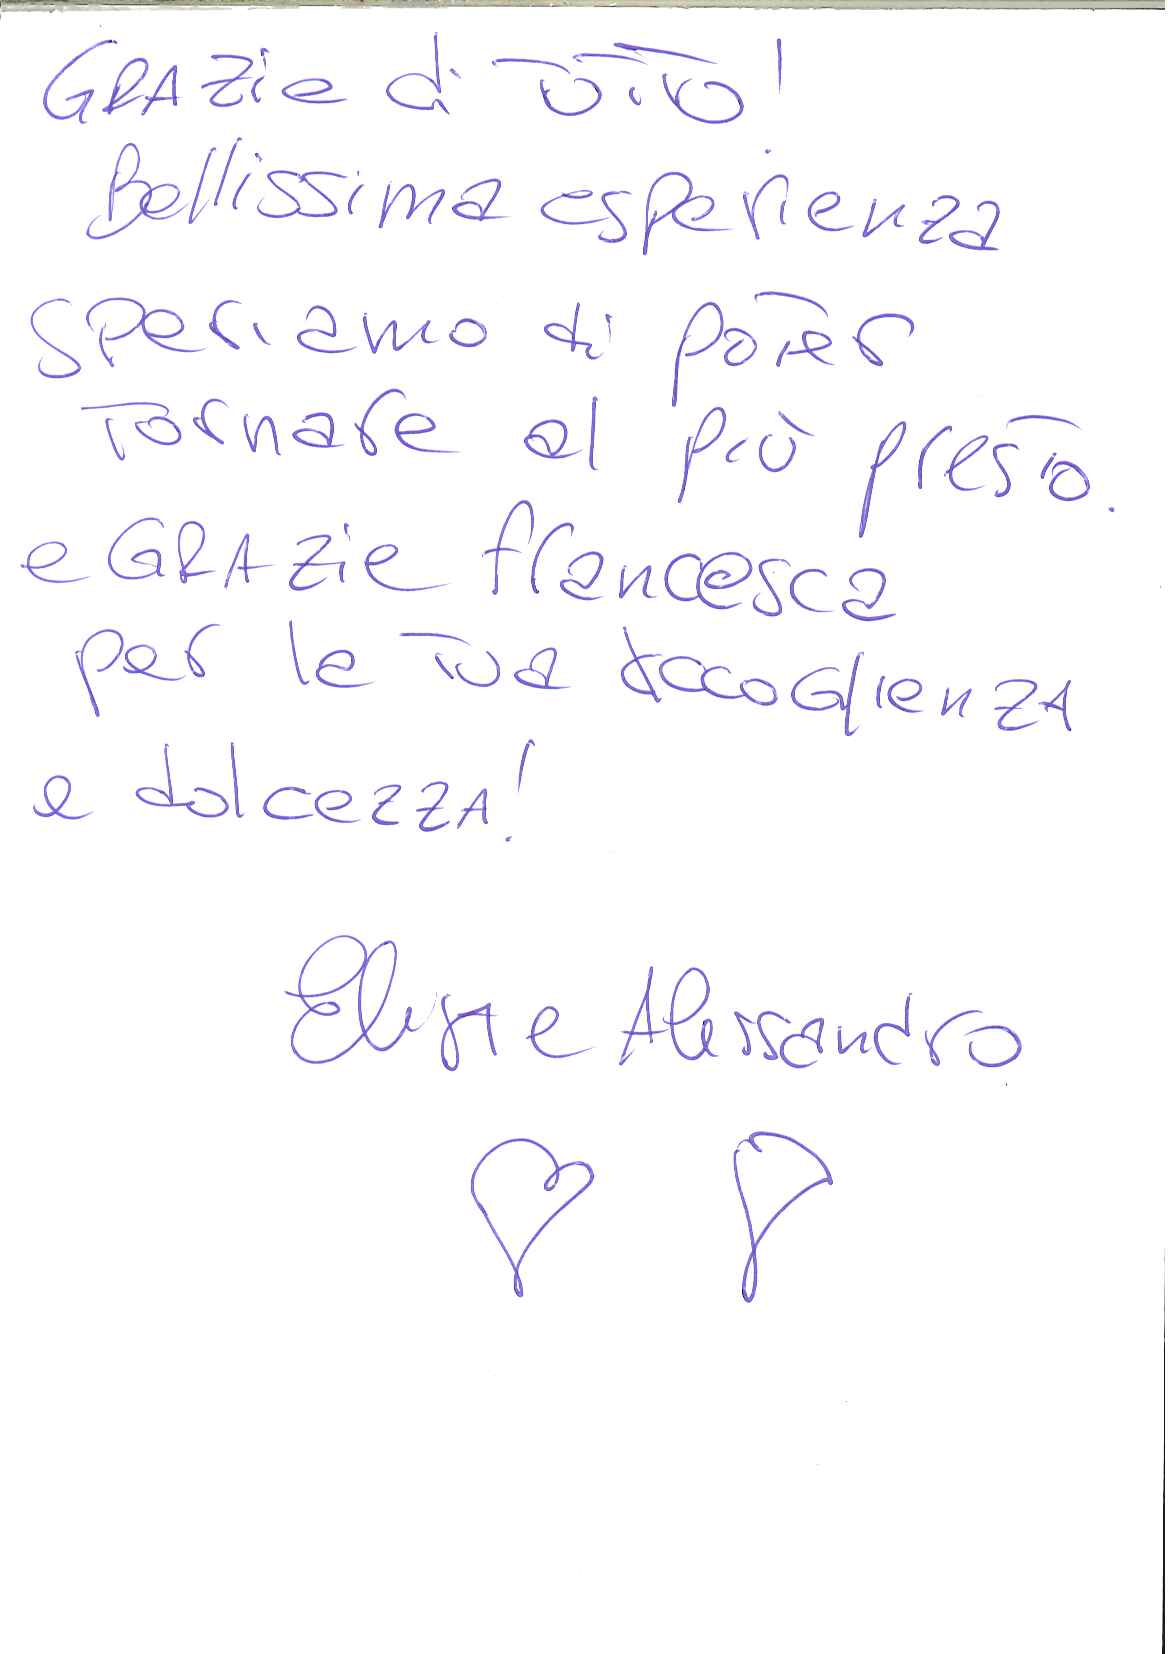 GRAZie di TUTTO!
Bellissima esperienza
speriamo di poter
Tornare al più presto.
e GRAZie francesca
per la Tua accoglienZA
e dolceZZA!
e Alessandro